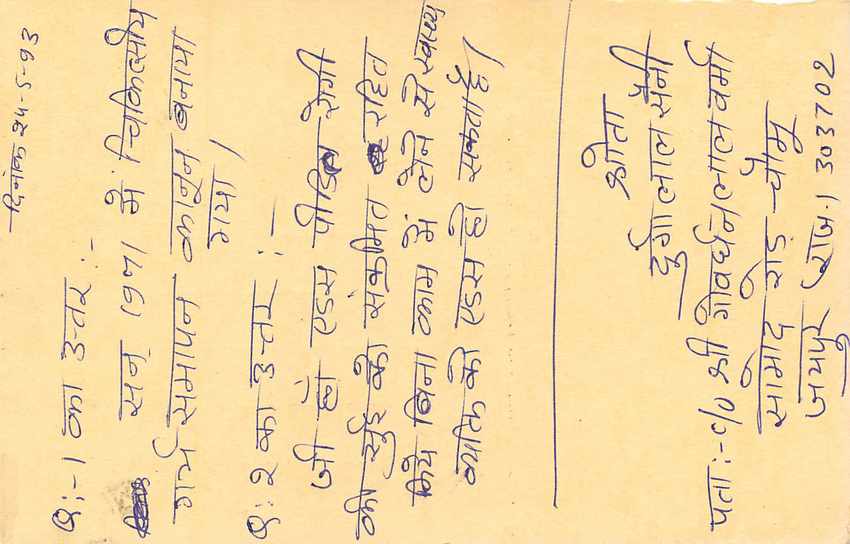 दिनांक 24-5-93
प्र:-1 का उत्तर:-
सन् 1971 में चिकित्सीय
गर्भ समापन कानून बनाया
गया।
प्र:2 का उत्तर:-
जी हाँ एड्स पीडित रोगी
की सुई को संक्रमित रहित
किये बिना काम में लेने से स्वस्थ्य
व्यक्ति को एड्स हो सकता है।
श्रोता
दुर्गा लाल सैनी
पता:- c/o श्री गोवर्धन लाल वर्मा
सामोद रोड चौमु
जयपुर (राज.) 303702